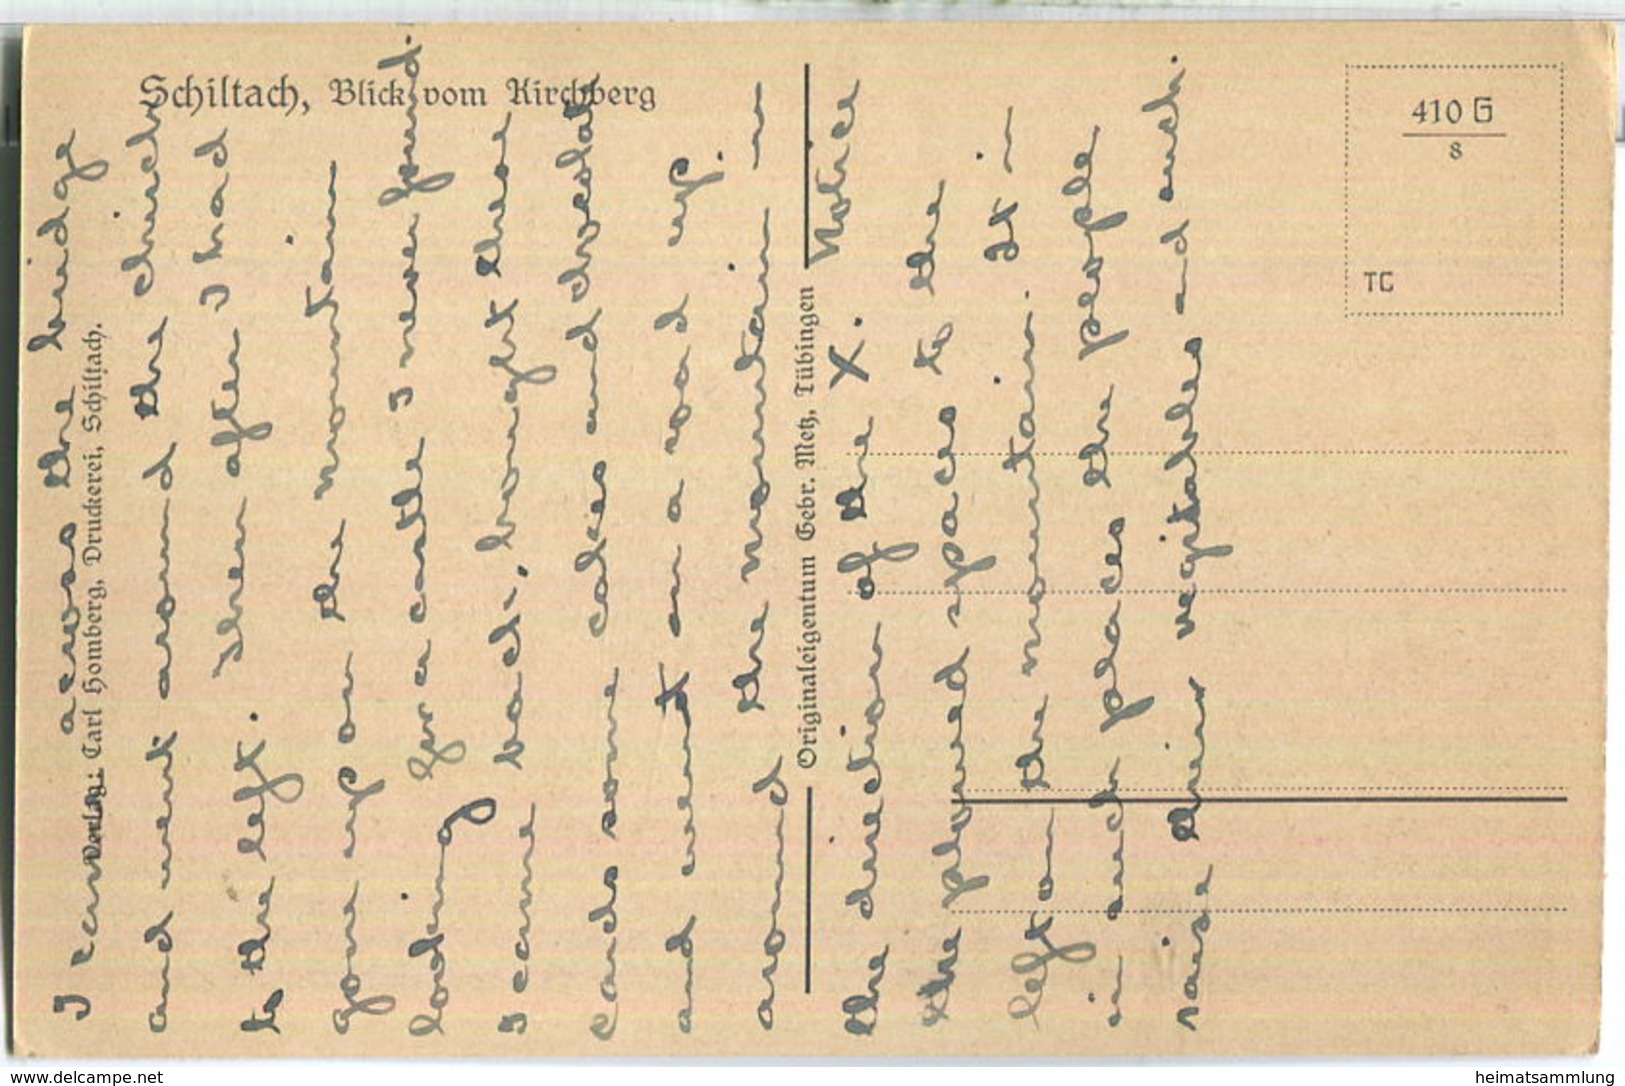 Schiltach, Blick vom Kirchberg
I came across the bridge
and went around the church
to the left. Then after I had
gone up on the mountain
looking for a castle I never found.
I came back, bought these
cards some cakes and chocolate
and went on a road up
around the mountain in
the direction of the X. Notice
the plowed spaces to the
left on the mountain. It is
in such places the people
raise their vegitables and such.
Verlag: Carl Homberg, Druckerei, Schiltach.
Originaleigentum Gebr. Metz, Tübingen
410 G
8
TC
www.delcampe.net
heimatsammlung